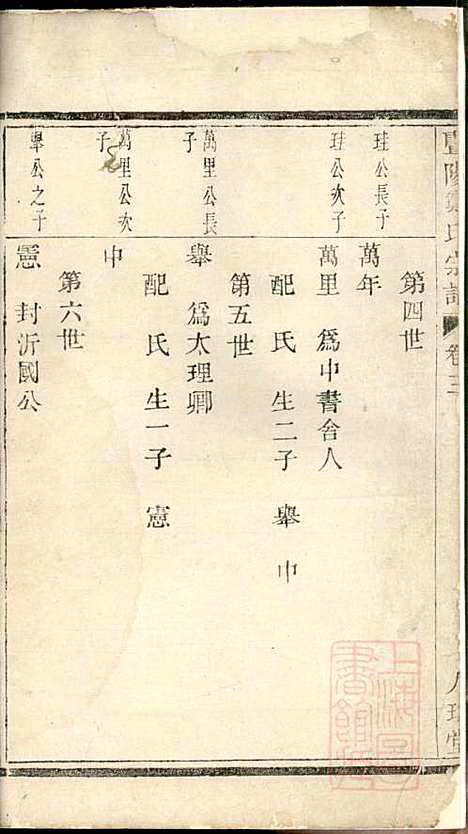 第四世
珪公長子
萬年
珪公次子
萬里 爲中書舍人
配 氏 生二子 舉 中
第五世
萬里公長子
舉 爲太理卿
配 氏 生一子 憲
萬里公次子
中
第六世
舉公之子
憲 封沂國公
氏宗譜 卷三
上海圖書館藏